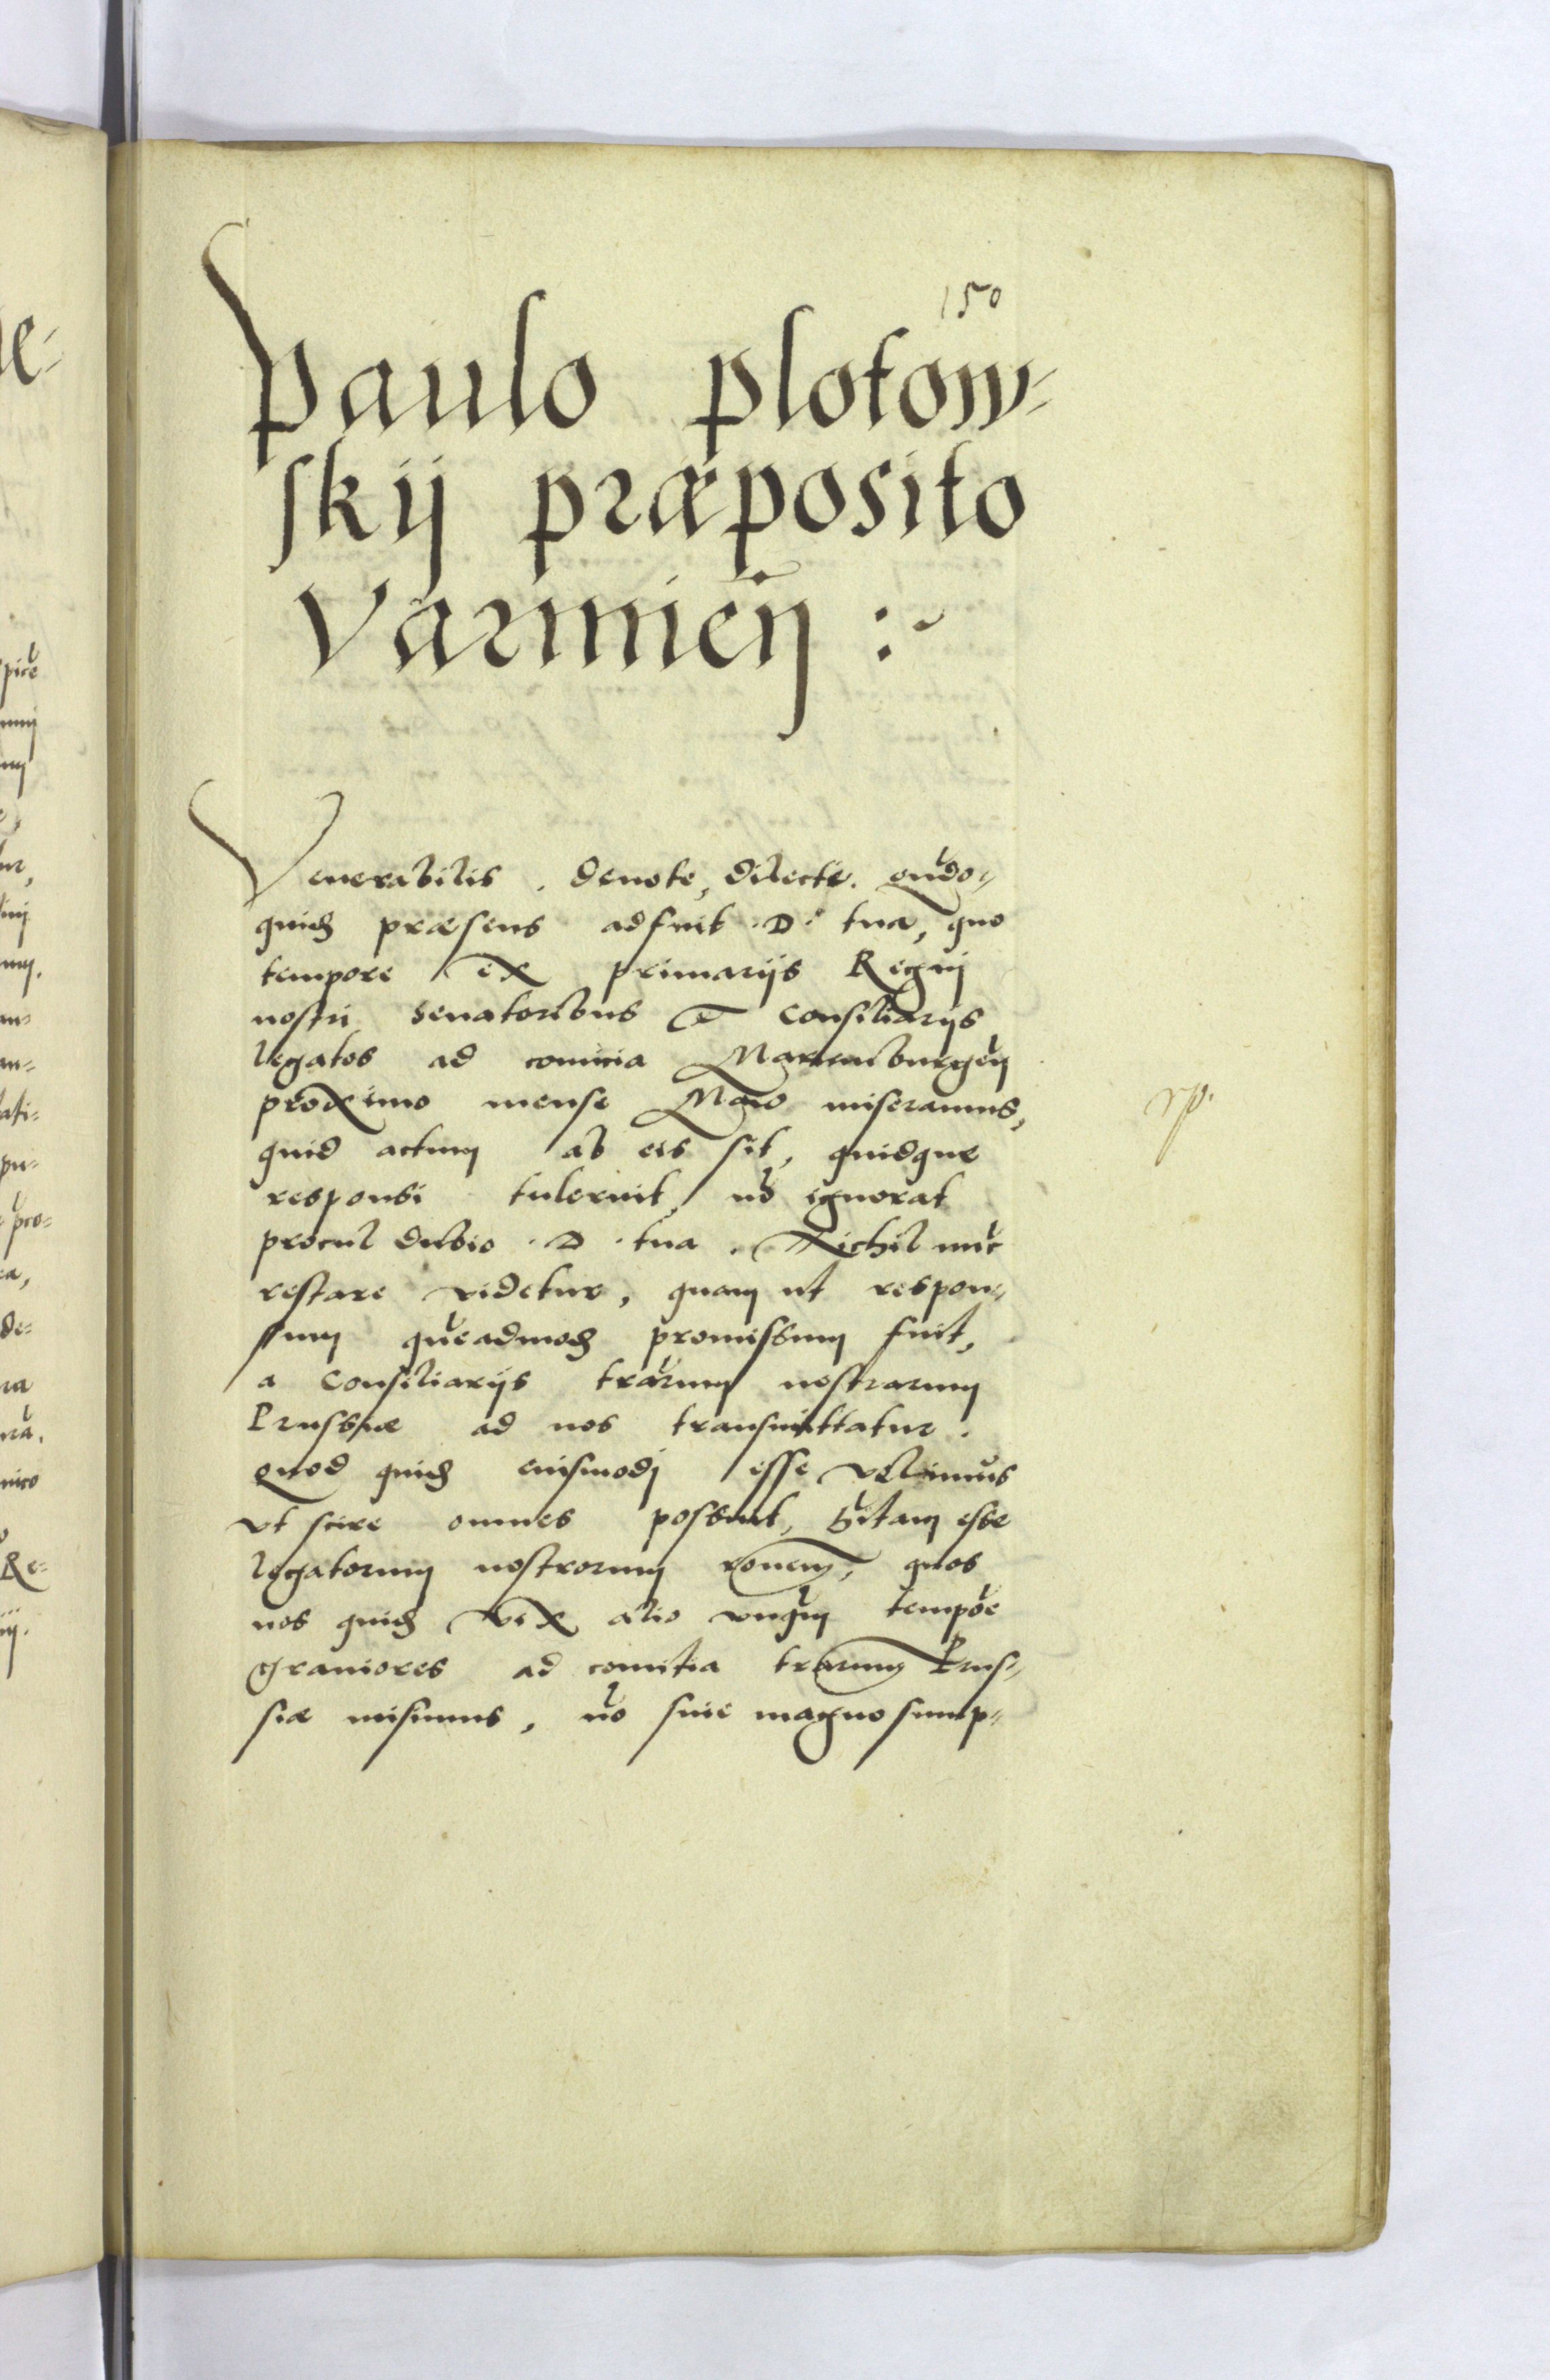 150
Paulo plotow=
skij præposito
Varmien̄ :~
Venerabilis. deuote, dilecte. qūdo=
quid₃ præsens adfuit .D. tua, quo
tempore ex primarijs Regnj
nostri senatoribus et Consiliarijs
legatos ad comitia Marienburgen̄
proximo mense Maio miseramus,
quid actum ab eis sit, quidque
responsi tulerint, nō ignorat
procul dubio .D. tua. Nichil nūc
restare videtur, quam ut respon=
sum quēadmod₃ promissum fuit,
a Consiliarijs trārum nostrarum
Prussiæ ad nos transmittatur.
quod quid₃ eiusmodj esse vellimus
vt scire omnes possint, hītam esse
legatorum nostrorum rōnem, quos
nos quid₃ vix alio vnqūm tempōe
grauiores ad comitia trārum Prus=
siæ misimus, nō sine magno sump=
rp.